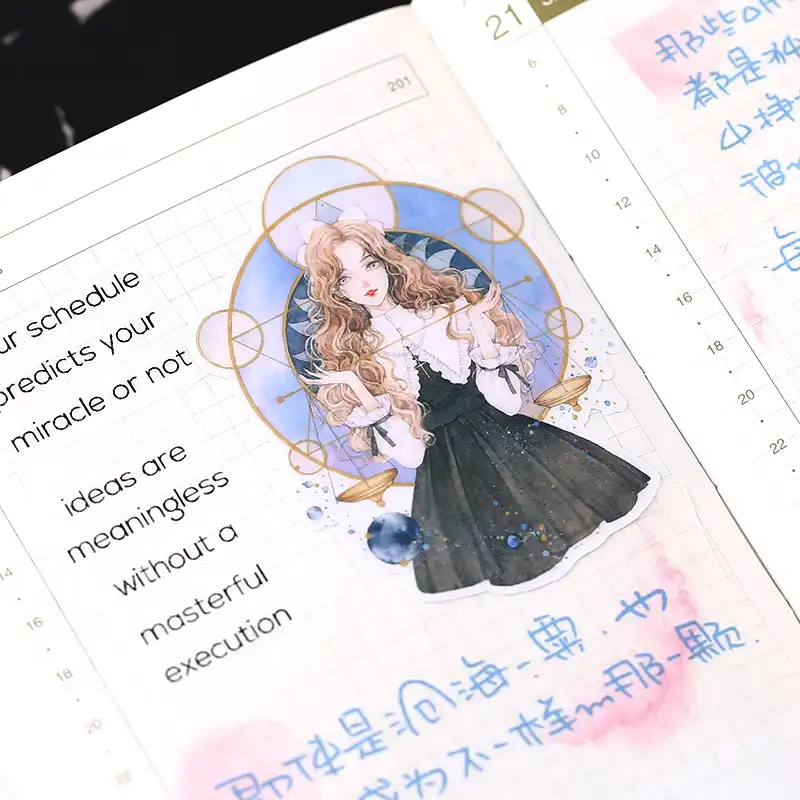 201
ur schedule
predicts your
miracle or not
ideas are
meaningless
without a
masterful
execution
14
16
18
20
22
即使是沧海一粟.也
成为不一样的那一颗.
21
6
8
10
12
14
16
18
20
22
那些
都是
小挣
被
每